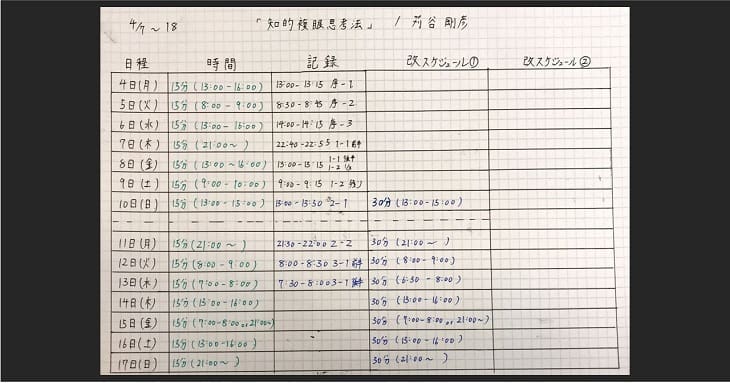 4/7～18 「知的複眼思考法」 / 苅谷剛彦
日程 時間 記録 改スケジュール① 改スケジュール②
4日(月) 15分(13:00-16:00) 13:00-13:15 序-1
5日(火) 15分(8:00-9:00) 8:30-8:45 序-2
6日(水) 15分(13:00-16:00) 14:00-14:15 序-3
7日(木) 15分(21:00～) 22:40-22:55 1-1 前半
8日(金) 15分(13:00～16:00) 13:00-13:15 1-1 後半 1-2 1/2
9日(土) 15分(9:00-10:00) 9:00-9:15 1-2 残り
10日(日) 15分(13:00-15:00) 13:00-13:30 2-1 30分(13:00-15:00)
11日(月) 15分(21:00～) 21:30-22:00 2-2 30分(21:00～)
12日(火) 15分(8:00-9:00) 8:00-8:30 3-1 前半 30分(8:00-9:00)
13日(水) 15分(7:00-8:00) 7:30-8:00 3-1 後半 30分(6:30-8:00)
14日(木) 15分(13:00-16:00) 30分(13:00-16:00)
15日(金) 15分(7:00-8:00 or 21:00～) 30分(7:00-8:00 or 21:00～)
16日(土) 15分(13:00-16:00) 30分(13:00-16:00)
17日(日) 15分(21:00～) 30分(21:00～)